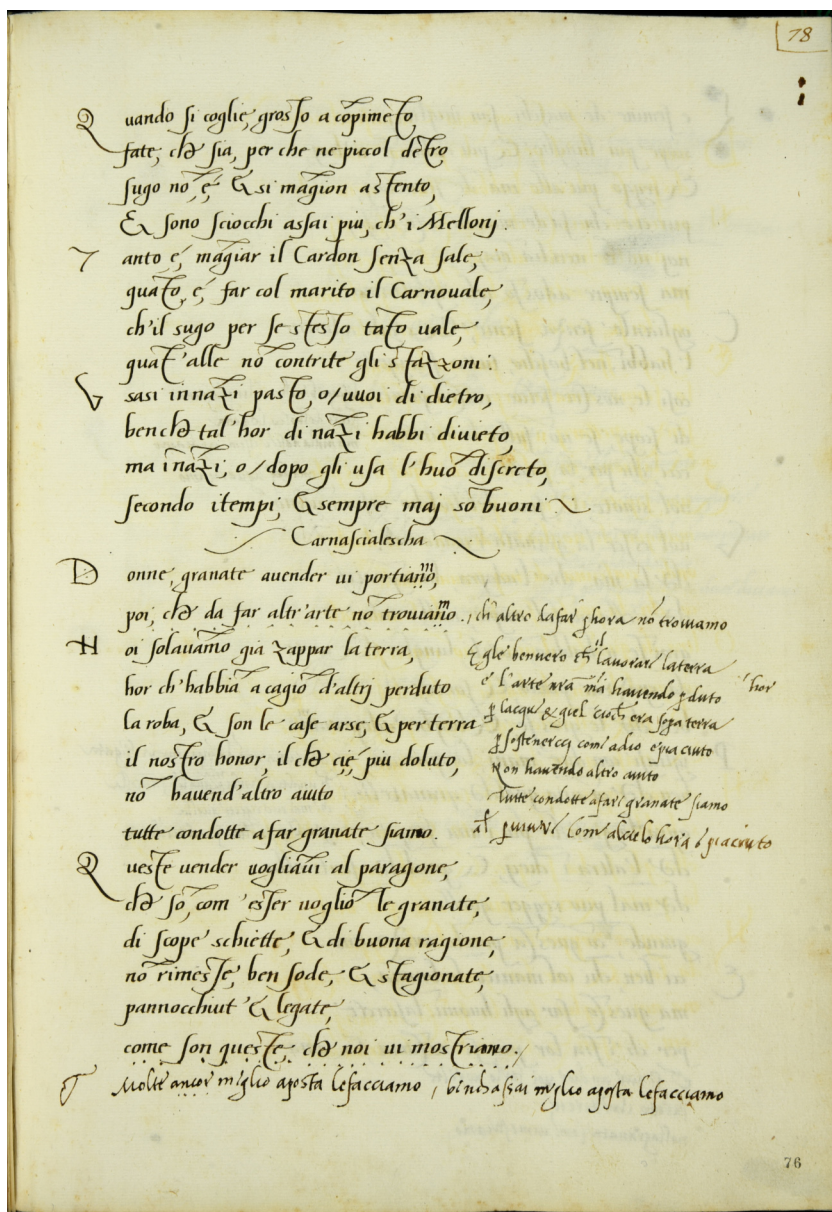 78
Quando si coglie, grosso a cōpimēto,
fate, chè sia, per che ne piccol dētro
sugo nō, é, & si māgion a stento,
& sono sciocchi assai piu, ch'i Mellonj.
Tanto é, māgiar il Cardon senza sale,
quāto, é, far col marito il Carnouale,
ch'il sugo per se stesso tāto uale,
quāt'alle nō contrite gli stāzzoni.
Vsasi innāzi pasto, o/uuoi di dietro,
benchè tal'hor di nāzi habbi diuieto,
ma īnāzi, o/dopo gli usa l'huō discreto,
secondo i tempi, & sempre maj sō buoni
Carnascialescha
Donne, granate auender ui portiamo,
poi, chè da far altr'arte nō trouiamo., ch' altro dafar phora nō trouiamo
Noi solauāmo già zappar la terra,
hor ch'habbiā a cagiō d'altrj perduto
la roba, & son le case arse, & per terra
il nostro honor, il chè cié piu doluto,
nō hauend'altro aiuto
tutte condotte a far granate siamo.
& gle benuero ch' lauorare laterra
e l'arte nrā mā hauendo pduto hor
p lacqu & giel ciochera sopa terra
p sostenercj come adio epiaciuto
Non hauendo altro aiuto
Tutte condotte afare granate siamo
come alcielo hora e piaciuto
Queste uender uogliāui al paragone,
chè sō, com' esser uogliō le granate,
di scope schiette, & di buona ragione,
nō rimesse, ben sode, & stagionate,
pannocchiut' & legate,
come son queste, chè noi ui mostriamo.
Molte ancor meglio aposta lefacciamo, binchassai meglio aposta lefacciamo
76